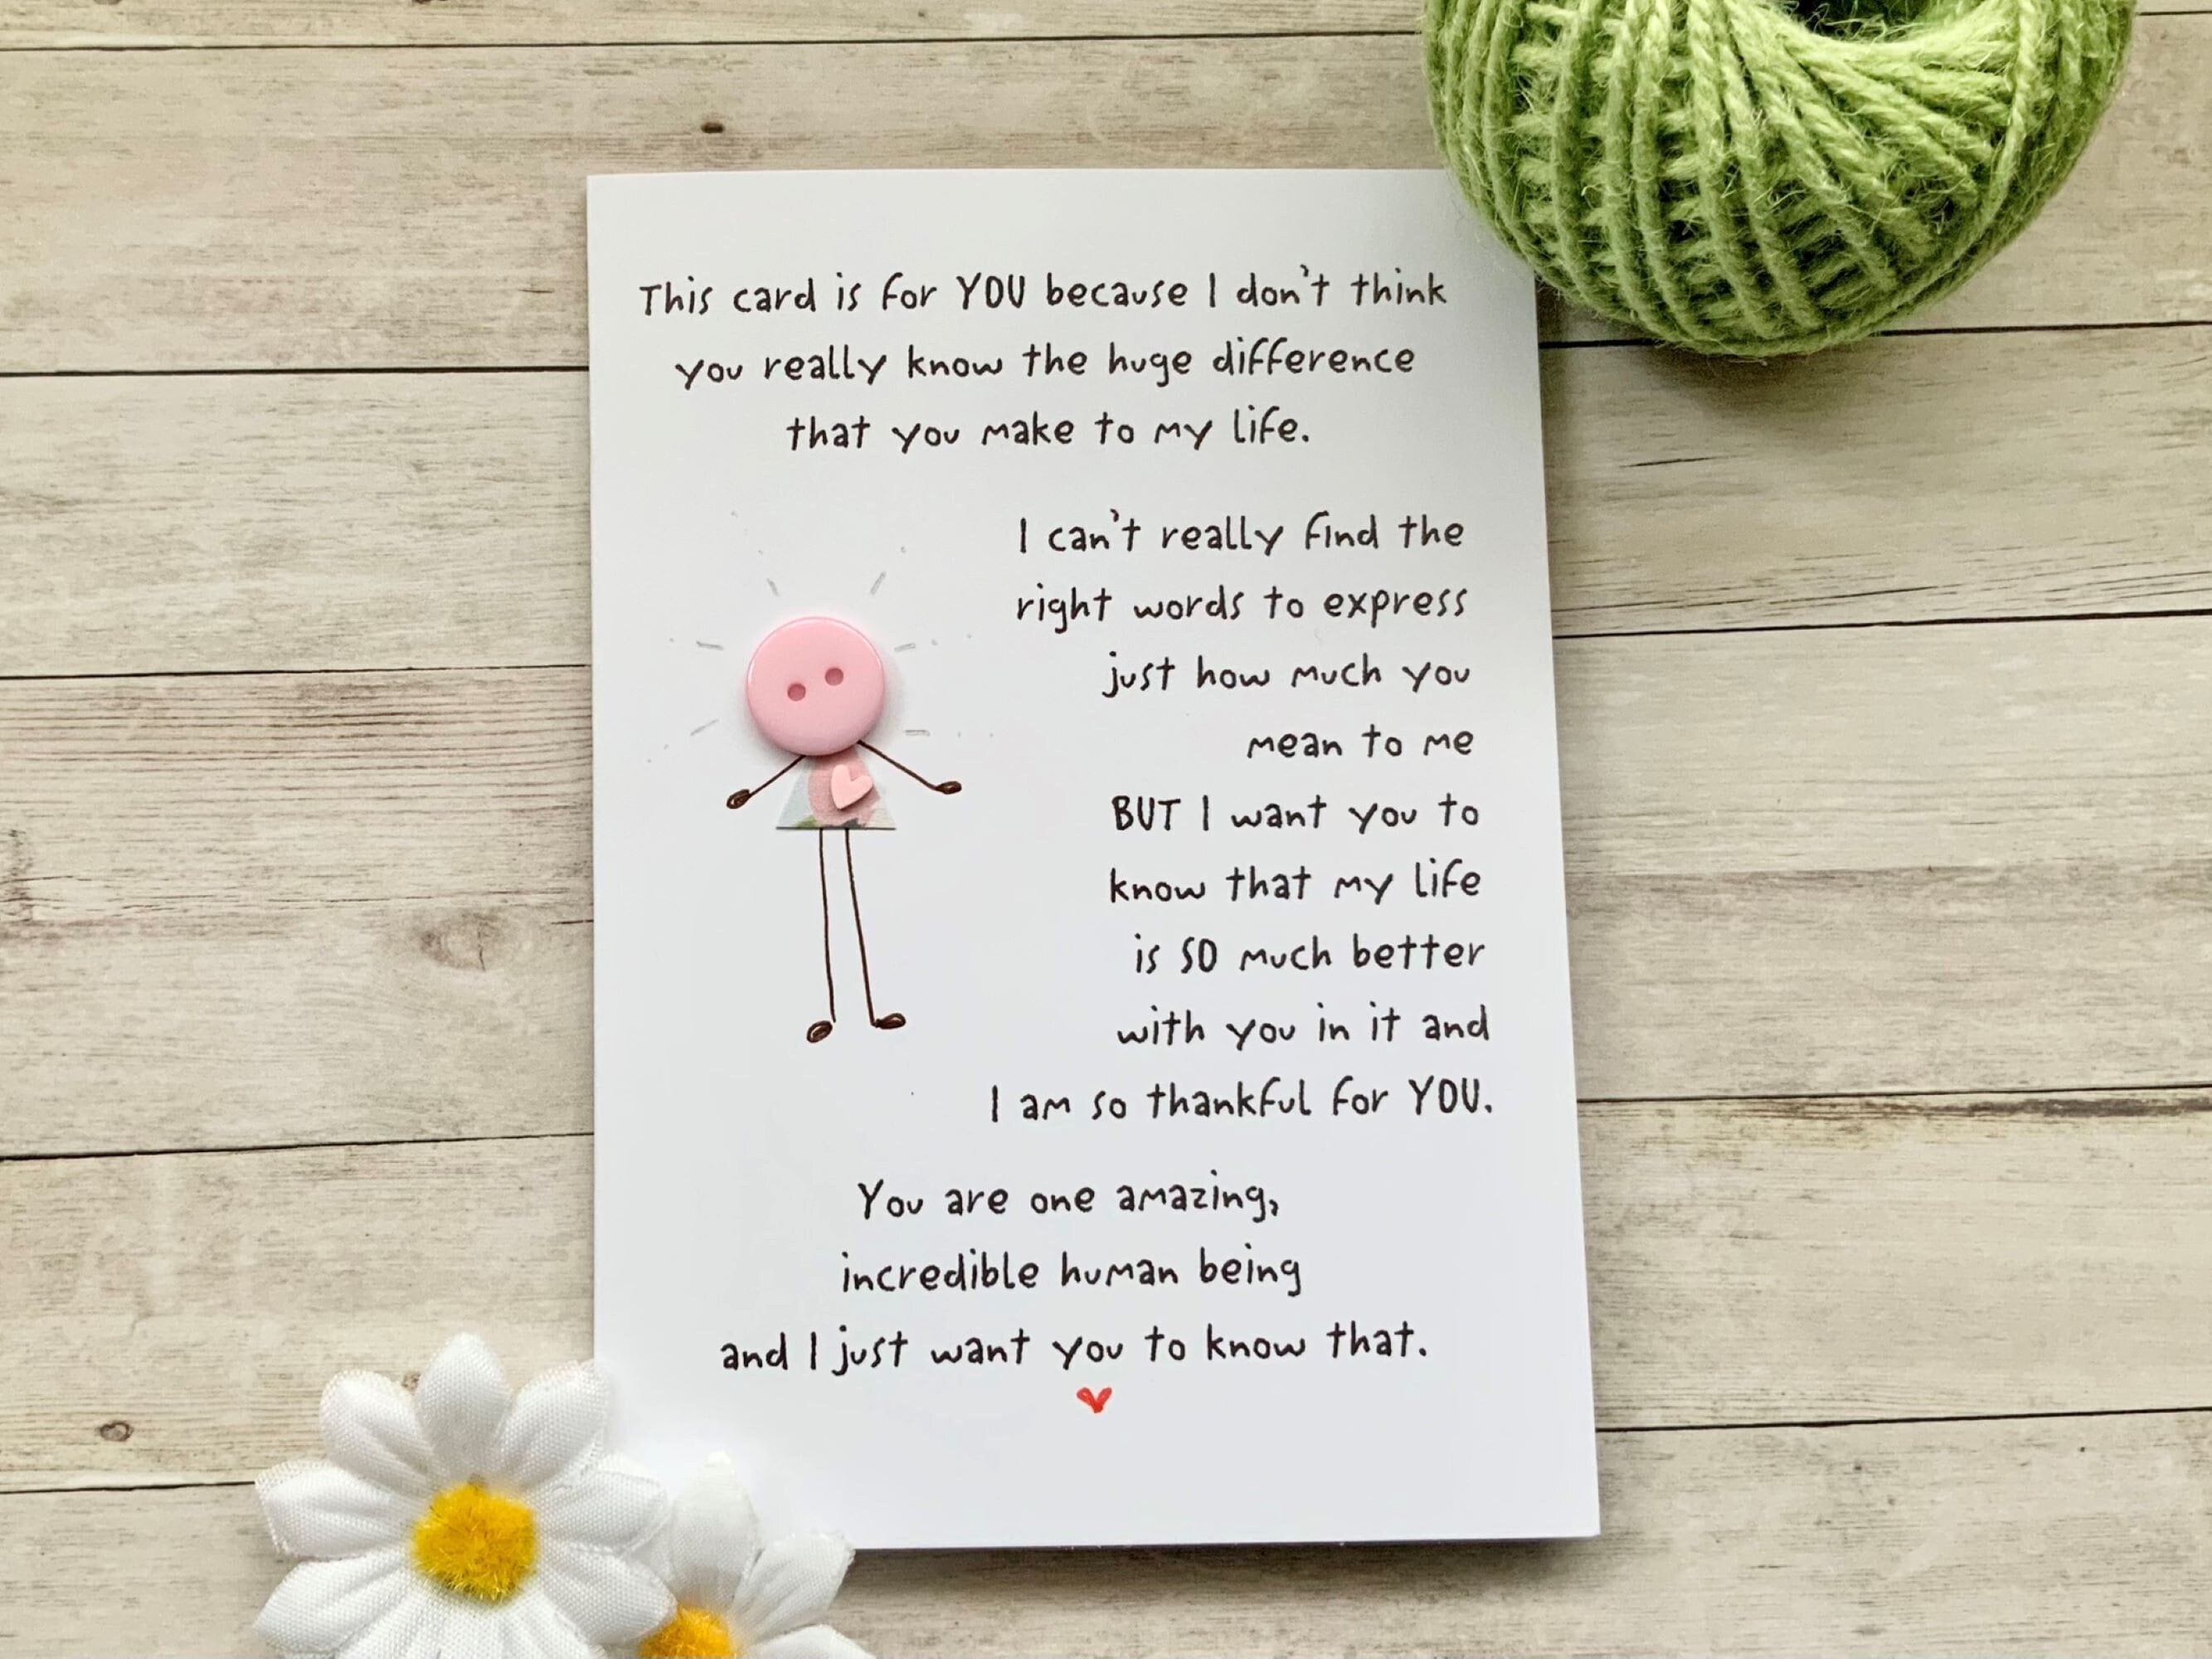 This card is for YOU because I don't think
you really know the huge difference
that you make to my life.
I can't really find the
right words to express
just how much you
mean to me
BUT I want you to
know that my life
is SO much better
with you in it and
I am so thankful for YOU.
You are one amazing,
incredible human being
and I just want you to know that.